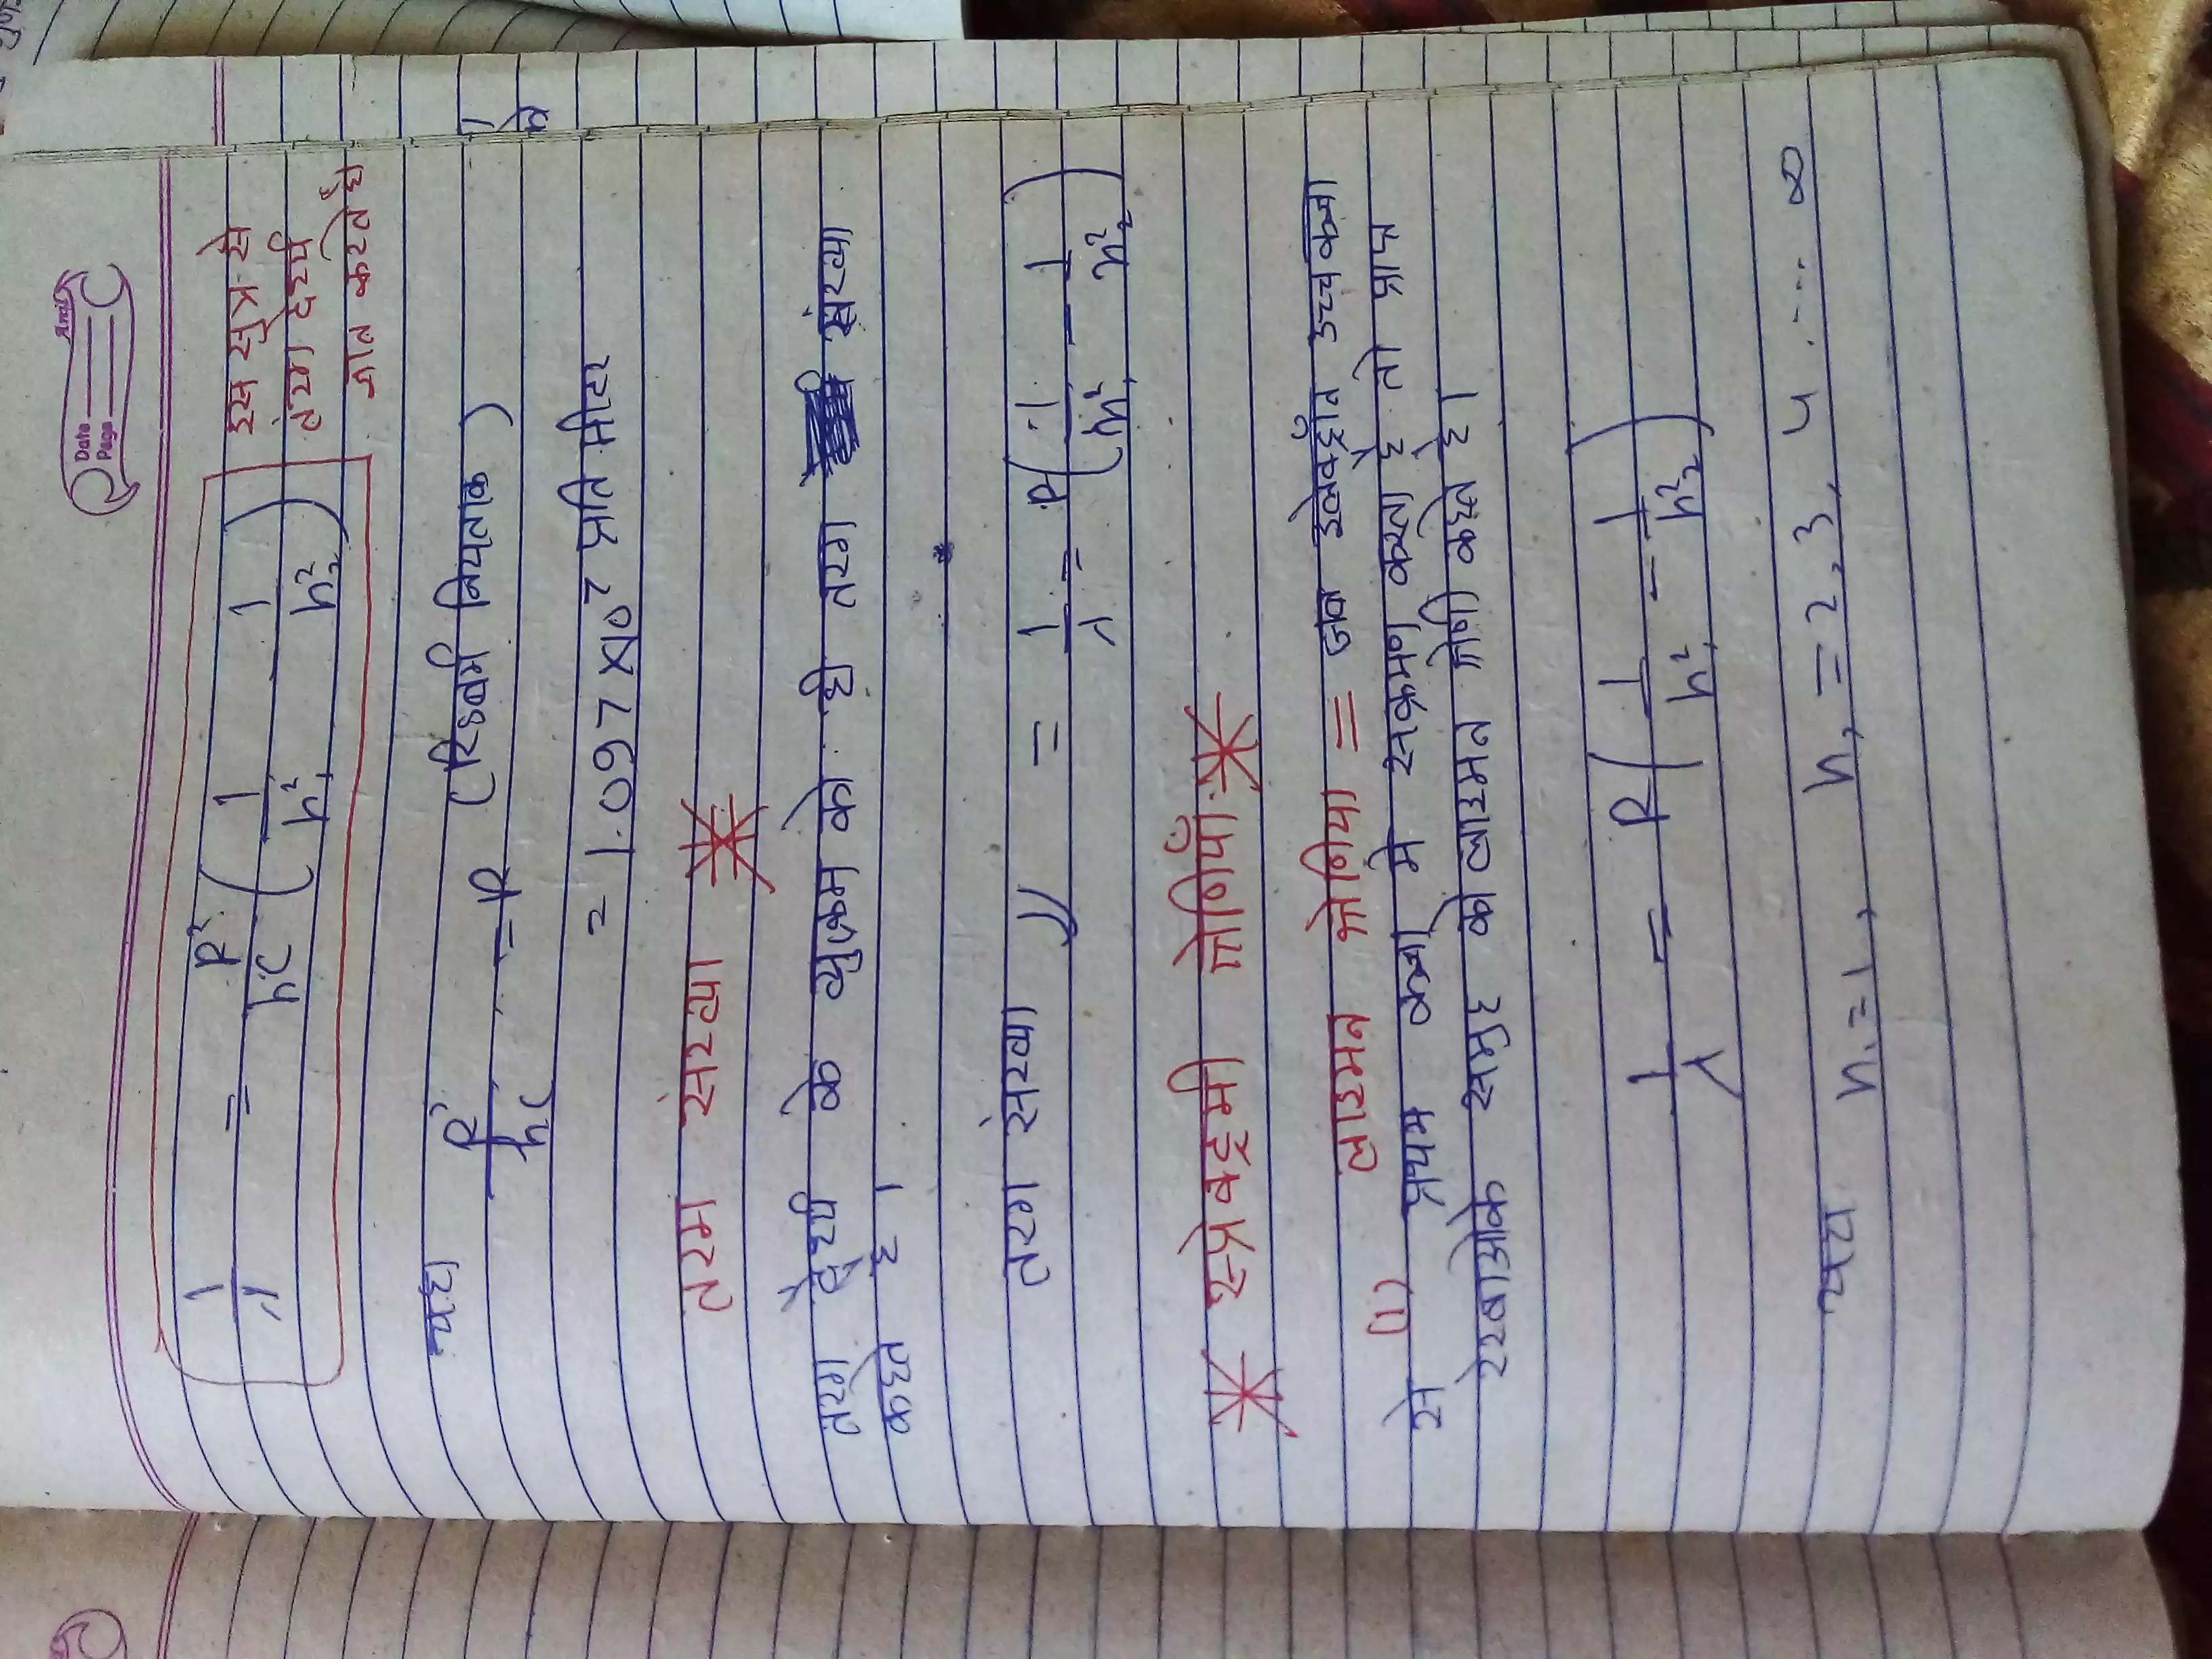 Anil
Date
Page
1/λ = R'/hc (1/n₁² - 1/n₂²) इस सुत्र से
तंरग दर्ध्य
ज्ञात करते है
यहा R'/hc = R (रिडबर्ग नियताक)
= 1.097 X 10⁷ प्रति मीटर
तरंग संख्या
तरंग दैर्ध्य के व्युत्क्रम को ही तरंग संख्या
कहते है ।
तरंग संख्या ν = 1/λ = R (1/n₁² - 1/n₂²)
* स्प्रेक्ट्रमी श्रेणियाँ *
(1) लाइमन श्रेणिया = जब इलेक्ट्रॉन उच्च कक्षा
से प्रथम कक्षा मे सक्रमण करता है तो प्राप्त
रेखाओके समुह को लाइमन श्रेणी कहते है ।
1/λ = R (1/n₁² - 1/n₂²)
यहा n₁ = 1, n₂ = 2, 3, 4 .... ∞